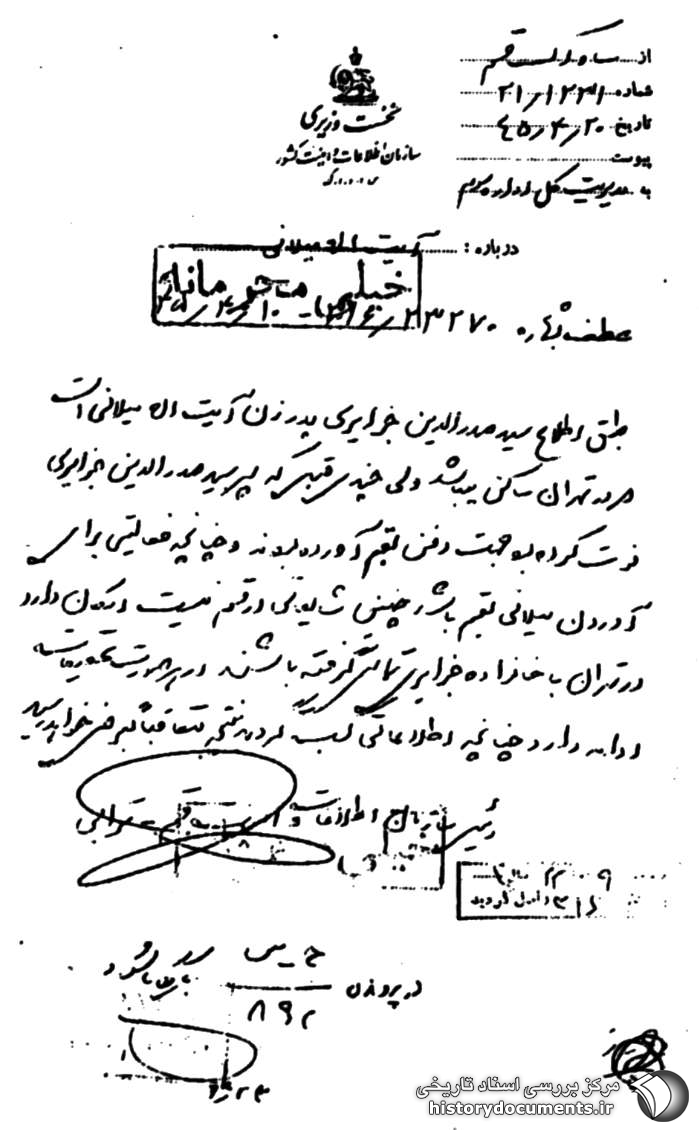 از ساواک قم
شماره ۲۱/۱۲۳۱
تاریخ ۴۵/۴/۲۰
پیوست
به مدیریت کل اداره سوم
نخست وزیری
سازمان اطلاعات و امنیت کشور
س.ا.و.ا.ک
درباره: آیت اله میلانی
خیلی محرمانه
عطف بشماره ۲۳۲۷۰/۳۱۶
طبق اطلاع سید صدرالدین جزایری پدر زن آیت اله میلانی است
و در تهران ساکن میباشد ولی چندی قبل که پسر سید صدرالدین جزایری
فوت کرده بود جهت دفن بقم آورده بودند و چنانچه فعالیتی برای
آوردن میلانی بقم باشد چنین شایعاتی در قم نیست و امکان دارد
در تهران با خانواده جزایری تماس گرفته باشند در هر صورت تحقیقات
ادامه دارد چنانچه اطلاعاتی کسب گردد نتیجه متعاقباً بعرض خواهد رسید
رئیس سازمان اطلاعات و امنیت قم
در پرونده ح - س بایگانی شود
۸۹۲
مرکز بررسی اسناد تاریخی
historydocuments.ir